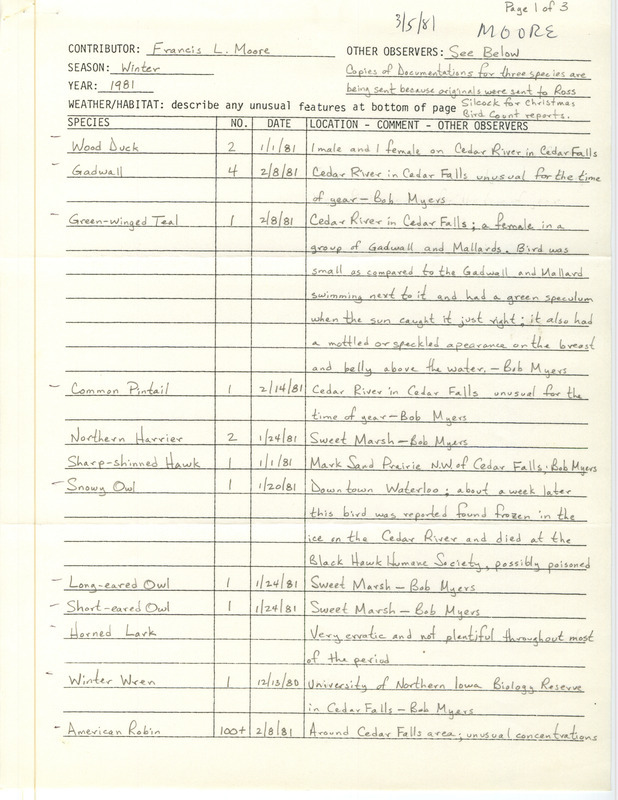 Page 1 of 3
3/5/81 MOORE
CONTRIBUTOR: Francis L. Moore OTHER OBSERVERS: See Below
SEASON: Winter Copies of Documentations for three species are
YEAR: 1981 being sent because originals were sent to Ross
WEATHER/HABITAT: describe any unusual features at bottom of page Silcock for Christmas
Bird Count reports.
SPECIES NO. DATE LOCATION - COMMENT - OTHER OBSERVERS
- Wood Duck 2 1/1/81 1 male and 1 female on Cedar River in Cedar Falls
- Gadwall 4 2/8/81 Cedar River in Cedar Falls unusual for the time
of year - Bob Myers
- Green-winged Teal 1 2/8/81 Cedar River in Cedar Falls; a female in a
group of Gadwall and Mallards. Bird was
small as compared to the Gadwall and Mallard
swimming next to it and had a green speculum
when the sun caught it just right; it also had
a mottled or speckled apearance on the breast
and belly above the water. - Bob Myers
- Common Pintail 1 2/14/81 Cedar River in Cedar Falls unusual for the
time of year - Bob Myers
Northern Harrier 2 1/24/81 Sweet Marsh - Bob Myers
Sharp-shinned Hawk 1 1/1/81 Mark Sand Prairie N.W. of Cedar Falls - Bob Myers
- Snowy Owl 1 1/20/81 Downtown Waterloo; about a week later
this bird was reported found frozen in the
ice on the Cedar River and died at the
Black Hawk Humane Society, possibly poisoned
- Long-eared Owl 1 1/24/81 Sweet Marsh - Bob Myers
- Short-eared Owl 1 1/24/81 Sweet Marsh - Bob Myers
- Horned Lark Very erratic and not plentiful throughout most
of the period
- Winter Wren 1 12/13/80 University of Northern Iowa Biology Reserve
in Cedar Falls - Bob Myers
- American Robin 100+ 2/8/81 Around Cedar Falls area; unusual concentrations